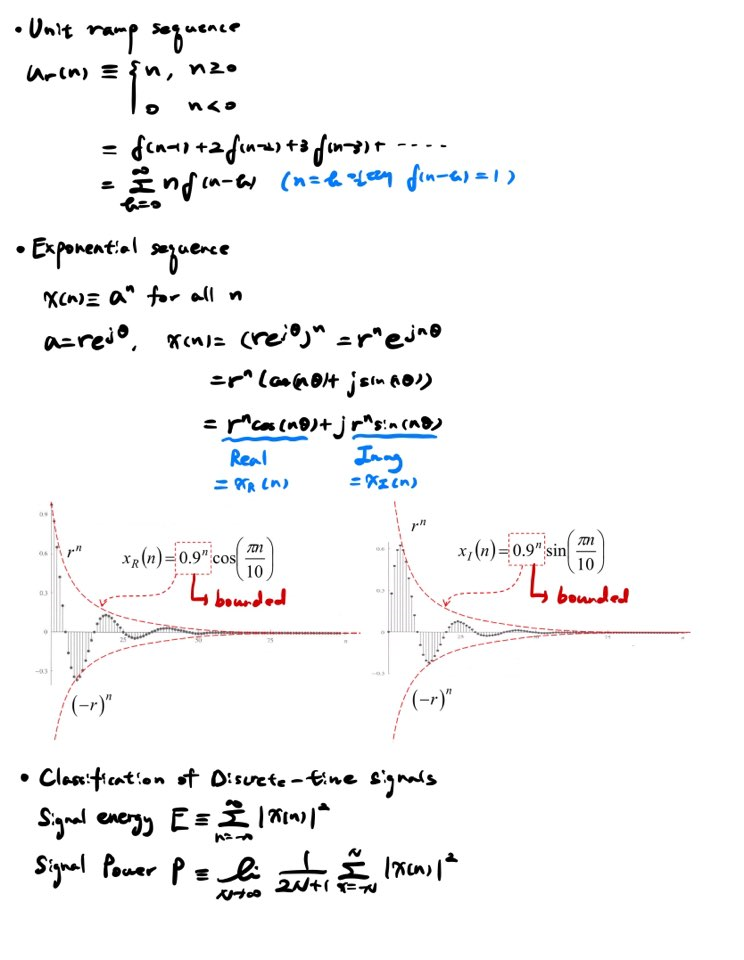 • Unit ramp sequence
u_r(n) ≡ { n, n≥0
0 n<0
= δ(n-1)+2δ(n-2)+3δ(n-3)+ ····
= ∑_{k=0}^{∞} nδ(n-k) (n=k 일때만 δ(n-k)=1)
• Exponential sequence
x(n)≡ aⁿ for all n
a=re^{jθ}, x(n)= (re^{jθ})ⁿ = rⁿe^{jnθ}
=rⁿ(cos(nθ)+ jsin(nθ))
= rⁿcos(nθ)+j rⁿsin(nθ)
Real Imag
= x_R(n) = x_I(n)
rⁿ x_R(n)=0.9ⁿ cos(πn/10)
↳ bounded
0.9
0.6
0.3
0
-0.3
25 50 75 n
(-r)ⁿ
rⁿ x_I(n)=0.9ⁿ sin(πn/10)
↳ bounded
0.6
0.3
0
-0.3
25 50 75 n
(-r)ⁿ
• Classification of Discrete-time signals
Signal energy E ≡ ∑_{n=-∞}^{∞} |x(n)|²
Signal Power P ≡ lim_{N→∞} 1/(2N+1) ∑_{n=-N}^{N} |x(n)|²